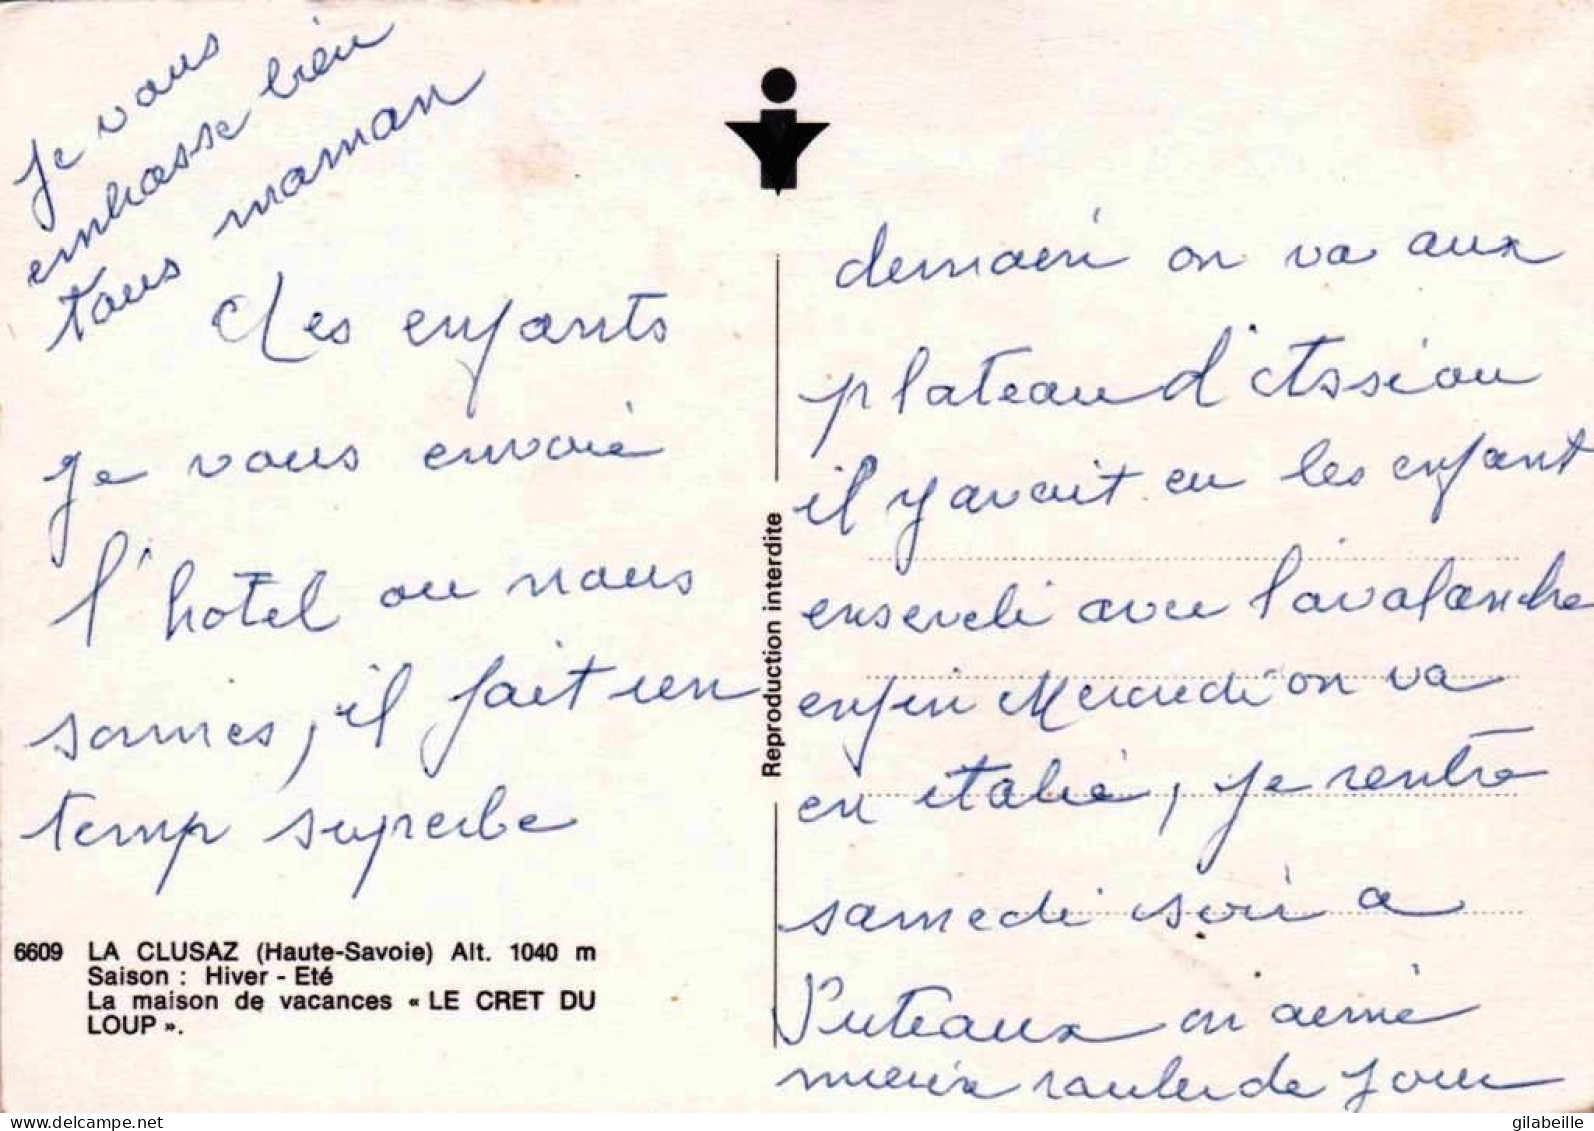 Les enfants
je vous envoie
l'hotel ou nous
somes, il fait un
temp superbe
demain on va aux
plateau d'Assiou
il y avait eu les enfant
enseveli avec l'avalanche
enfin Mercredi on va
en italie, je rentre
samedi soir a
Puteaux on aime
mieux rouler de jour
je vous
embrasse bien
tous maman
Reproduction interdite
6609 LA CLUSAZ (Haute-Savoie) Alt. 1040 m
Saison : Hiver - Eté
La maison de vacances « LE CRET DU
LOUP ».
gilabeille